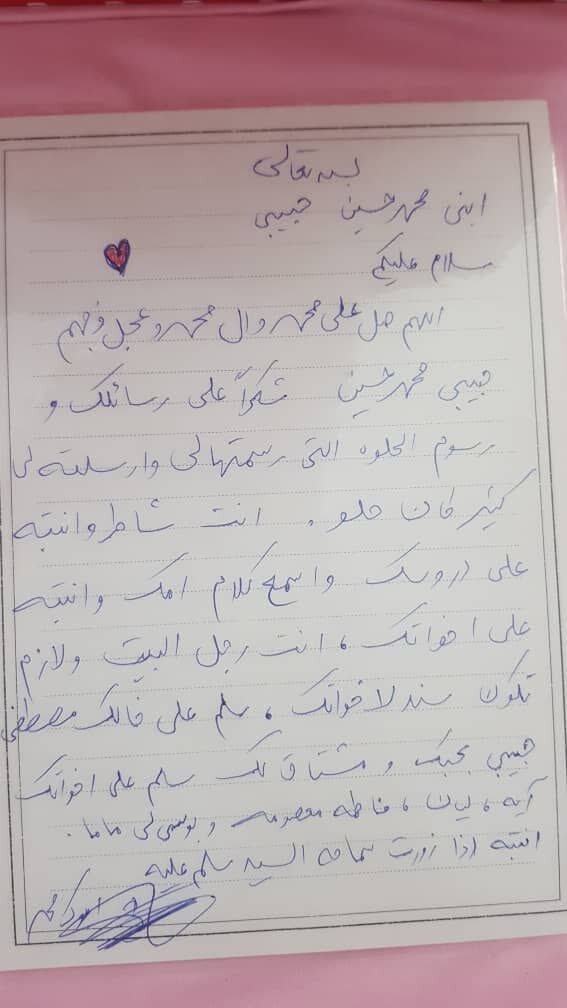 بسمه تعالى
ابني محمد حسين حبيبي
سلام عليكم
اللهم صل على محمد وال محمد وعجل فرجهم
حبيبي محمد حسين شكراً على رسائلك و
رسوم الحلوه التي رسمتها لي وارسلته لي
كثير كان حلو . انت شاطر وانتبه
على دروسك واسمع كلام امك وانتبه
على اخواتك ، انت رجل البيت ولازم
تكون سند لاخواتك ، سلم على خالك مصطفى
حبيبي بحبك و مشتاق لك سلم على اخواتك
آيه ، ليان ، فاطمه معصومه و بوسي لي ماما .
انتبه إذا زورت سماحه السيد سلم عليه